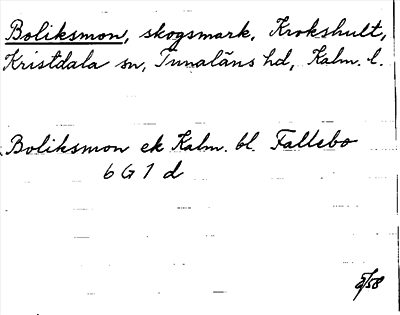 Boliksmon, skogsmark, Krokshult,
Kristdala sn, Tunaläns hd, Kalm. l.
Boliksmon ek Kalm. bl. Fallebo
6 G 1 d
/58